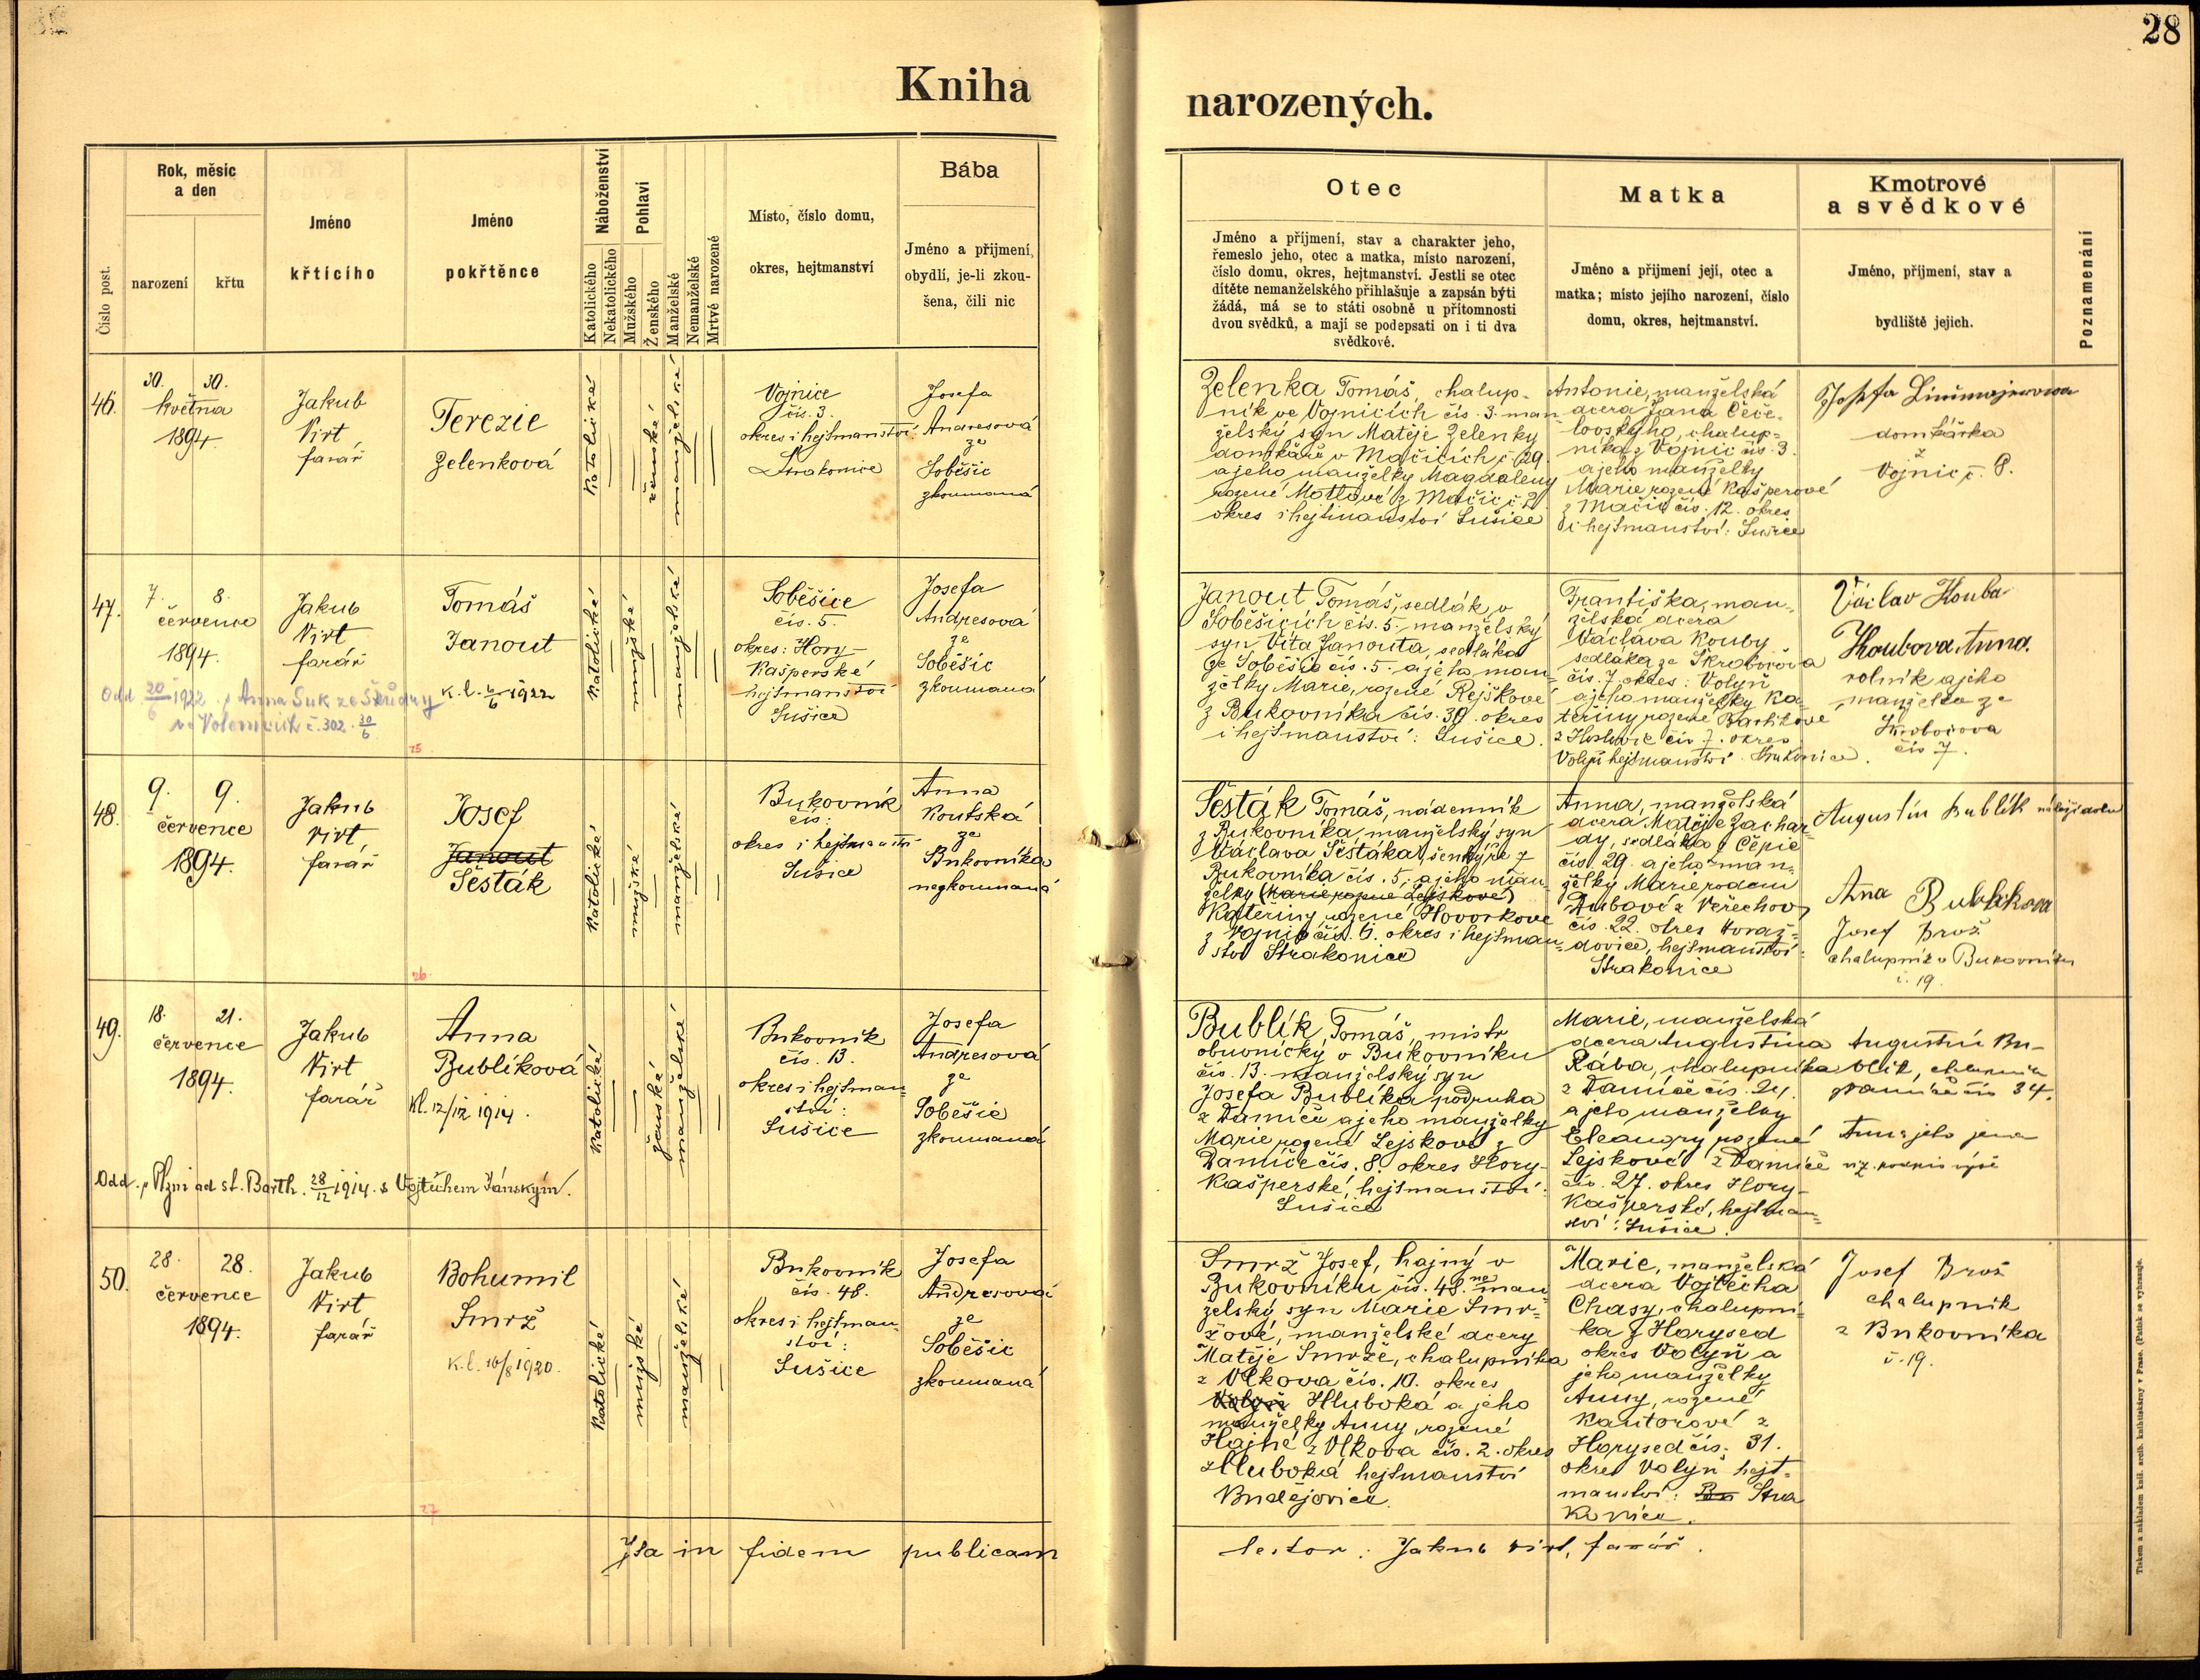 28
Kniha
narozených.
Číslo post.
Rok, měsíc
a den
narození
křtu
Jméno
křtícího
Jméno
pokřtěnce
Náboženství
Katolického
Nekatolického
Pohlaví
Mužského
Ženského
Manželské
Nemanželské
Mrtvé narozené
Místo, číslo domu,
okres, hejtmanství
Bába
Jméno a přijmení,
obydlí, je-li zkou-
šena, čili nic
Otec
Jméno a přijmení, stav a charakter jeho,
řemeslo jeho, otec a matka, místo narození,
číslo domu, okres, hejtmanství. Jestli se otec
dítěte nemanželského přihlašuje a zapsán býti
žádá, má se to státi osobně u přítomnosti
dvou svědků, a mají se podepsati on i ti dva
svědkové.
Matka
Jméno a přijmení její, otec a
matka; místo jejího narození, číslo
domu, okres, hejtmanství.
Kmotrové
a svědkové
Jméno, přijmení, stav a
bydliště jejich.
Poznamenání
46.
30. 30.
května
1894.
Jakub
Virt
farář
Terezie
Zelenková
Katolické
ženské
manželské
Vojnice
čís. 3.
okres i hejtmanství:
Strakonice
Josefa
Andresová
ze
Soběšic
zkoumaná
Zelenka Tomáš, chalup-
ník ve Vojnicích čís. 3. man
želský syn Matěje Zelenky
domkáře v Mačicích č. 29.
a jeho manželky Magdaleny
rozené Motlové z Mačic č. 2
okres i hejtmanství Sušice
Antonie, manželská
dcera Jana Čeče-
lovského, chalup-
níka z Vojnic čís. 3.
a jeho manželky
Marie rozené Kašperové
z Mačic čís. 12. okres
i hejtmanství: Sušice
Josefa
domkářka
z
Vojnic č. 8.
47.
7. 8.
července
1894.
Jakub
Virt
farář
Tomáš
Janout
k.l. 6/6 1922
Odd. 20/6 1922 s Anna Suk ze
ve Volenicích č. 302. 30/6
25
Katolické
mužské
manželské
Soběšice
čís. 5.
okres: Hory-
Kašperské
hejtmanství
Sušice
Josefa
Andresová
ze
Soběšic
zkoumaná
Janout Tomáš, sedlák v
Soběšicích čís. 5. manželský
syn Víta Janouta, sedláka
ze Soběšic čís. 5. a jeho man-
želky Marie, rozené Rejškové
z Bukovníka čís. 30. okres
i hejtmanství: Sušice.
Františka, man-
želská dcera
Václava Kouby
sedláka ze Škrobočova
čís. 7 okres: Volyň
a jeho manželky Ka-
teřiny rozené Bartikové
z čís. 7. okres
Volyň hejtmanství Strakonice.
Václav Houba
Houbova Anna.
rolník a jeho
manželka ze
Škrobočova
čís 7.
48.
9. 9.
července
1894.
Jakub
Virt
farář
Josef
Janout
Šesták
26
Katolické
mužské
manželské
Bukovník
čís:
okres i hejtmanství
Sušice
Anna
Koutská
ze
Bukovníka
nezkoumaná
Šesták Tomáš, nádenník
z Bukovníka, manželský syn
Václava Šestáka, šenkýře z
Bukovníka čís. 5. a jeho man-
želky (Marie rozené Lejskové)
Kateřiny rozené Hovorkove
z Vojnic čís. 6. okres i hejtman-
ství Strakonice
Anna, manželská
dcera Matěje Zachar-
dy, sedláka z Čepic
čís. 29. a jeho man-
želky Marie rodem
Dubové z Veřechov
čís. 22. okres Horaž-
dovice, hejtmanství:
Strakonice
Augustin Bublík náleží dolu
Anna Bublikova
Josef Brož
chalupník v Bukovníku
č. 19.
49.
18. 21.
července
1894.
Jakub
Virt
farář
Anna
Bublíková
Kl. 12/12 1914.
Odd. v Plzni ad st. Barth. 28/12 1914. s Vojtěchem Jánským.
Katolické
ženské
manželské
Bukovník
čís. 13.
okres i hejtman-
ství:
Sušice
Josefa
Andresová
ze
Soběšic
zkoumaná
Bublík, Tomáš, mistr
obuvnický v Bukovníku
čís. 13. manželský syn
Josefa Bublíka podruha
z Damíče a jeho manželky
Marie rozené Lejskové z
Damíče čís. 8. okres Hory-
Kašperské, hejtmanství:
Sušice
Marie, manželská
dcera Augustina
Rába, chalupníka
z Damíče čís. 24.
a jeho manželky
Eleanory rozené
Lejskové z Damíče
čís. 27. okres Hory-
Kašperské, hejtman-
ství: Sušice.
Augustin Bu-
blík, chalupník
Damíče čís 34.
Anna jeho žena
viz. podpis výše
50.
28. 28.
července
1894.
Jakub
Virt
farář
Bohumil
Smrž
K.l. 10/8 1920.
27
Katolické
mužské
manželské
Bukovník
čís. 48.
okres i hejtman-
ství:
Sušice
Josefa
Andresová
ze
Soběšic
zkoumaná
Smrž Josef, hajný v
Bukovníku čís. 48. ne man
želský syn Marie Smr-
žové, manželské dcery
Matěje Smrže, chalupníka
z Vlkova čís. 10. okres
Volyň Hluboká a jeho
manželky Anny, rozené
Hajné z Vlkova čís. 2. okres
Hluboká hejtmanství
Budějovice.
Marie, manželská
dcera Vojtěcha
Chasy, chalupní-
ka z Horysed
okres Volyň a
jeho manželky
Anny, rozené
Kantorové z
Horysed čís. 31.
okres Volyň hejt-
manství: Bu Stra
konice.
Josef Brož
chalupník
z Bukovníka
č. 19.
Ita in fidem publicam
testor: Jakub Virt, farář.